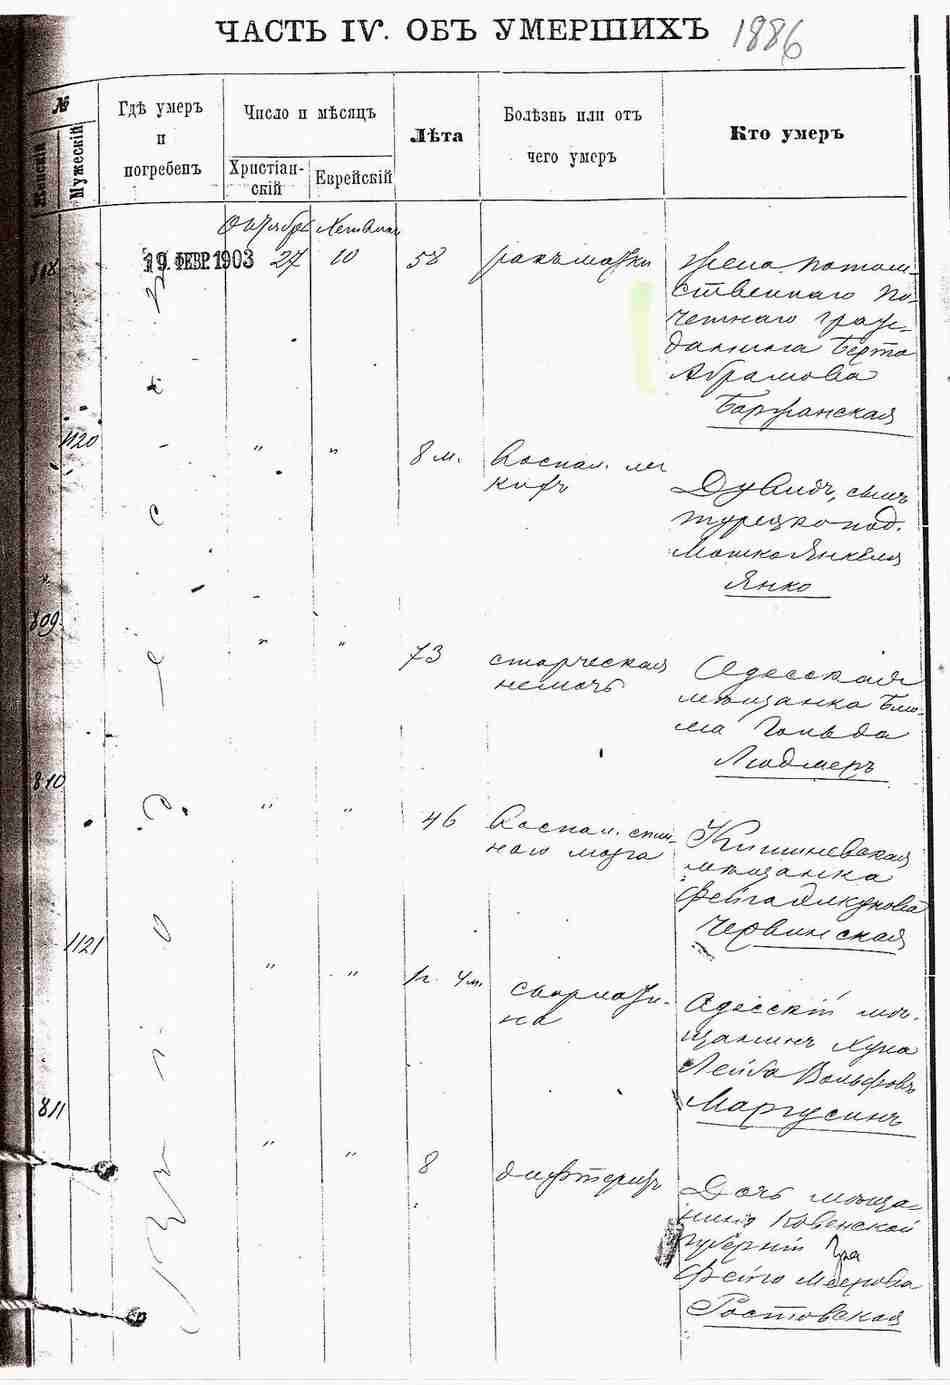 ЧАСТЬ IV. ОБЪ УМЕРШИХЪ 1886
№
Женскій
Мужескій
Гдѣ умеръ
и
погребенъ
Число и мѣсяцъ
Христіан-
скій
Еврейскій
Лѣта
Болѣзнь или отъ
чего умеръ
Кто умеръ
Октябрь Хешванъ
808
19. ФЕВР. 1903 27 10 58 ракъ матки
Жена потом-
ственнаго по-
четнаго граж-
данина Берта
Абрамова
Баржанская
1120 " " 8 м. Воспал. лег
кихъ
Дувидъ, сынъ
турецкопод.
Мошко Янкеля
Янко
809. " " 73 старческая
немочь
Одесская
мѣщанка Блю-
ма Гольда
Людмеръ
810 " " 46 Воспал. спин-
ного мозга
Кишиневская
мѣщанка
Фейга
Червинская
1121 " " 1 г. 4 м. скарлати-
на
Одесскій мѣ-
щанинъ Хуна
Лейба Вольфовъ
Маргусинъ
811 " " 8 дифтеритъ
Дочь мѣща-
нина Ковенской
губерніи
Фейга Меерова
Ростовская
Въ г. Одессѣ